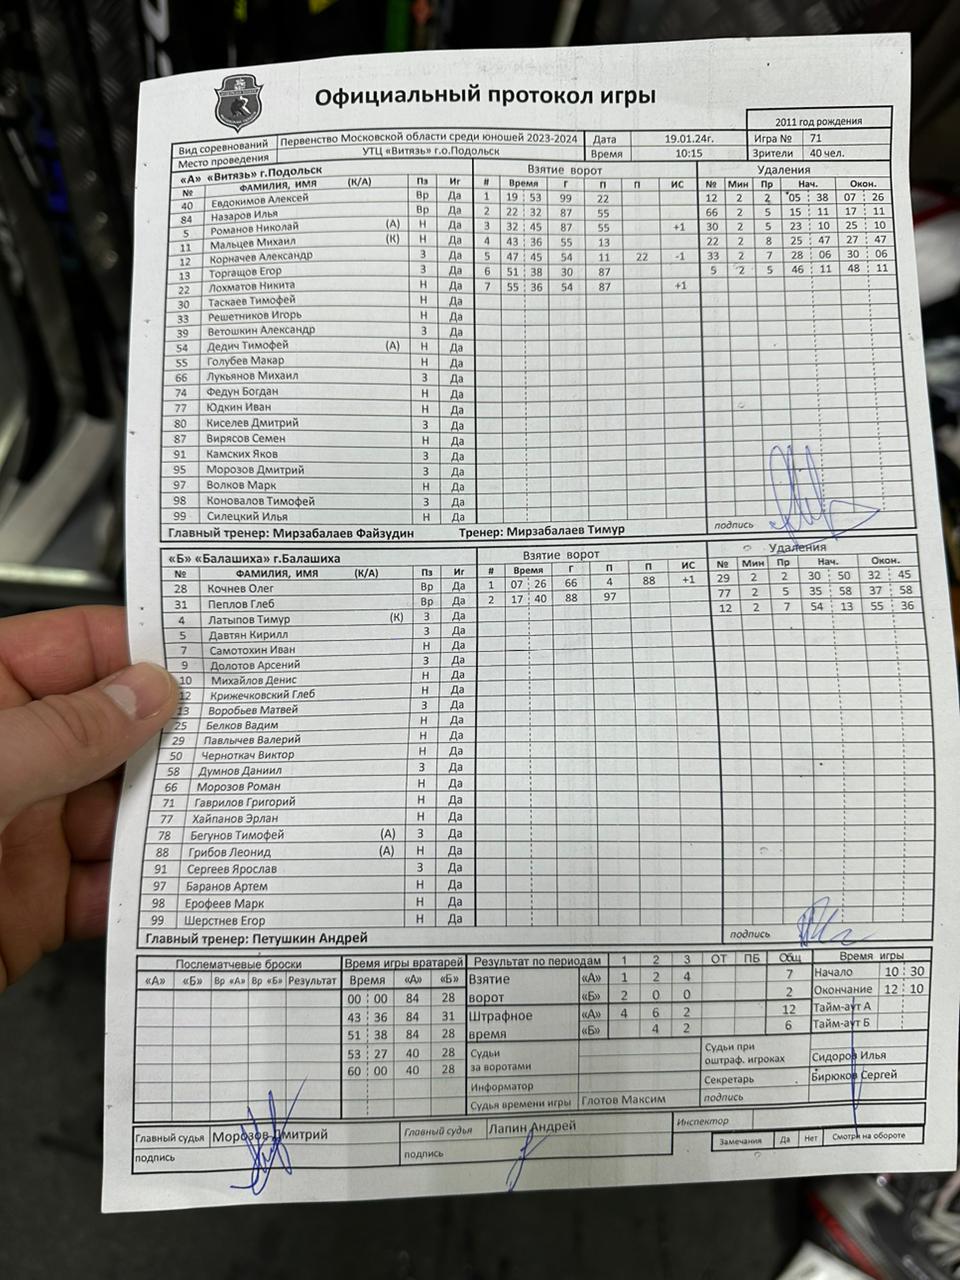 Официальный протокол игры
2011 год рождения
Вид соревнований Первенство Московской области среди юношей 2023-2024 Дата 19.01.24г. Игра № 71
Место проведения УТЦ «Витязь» г.о.Подольск Время 10:15 Зрители 40 чел.
«А» «Витязь» г.Подольск Взятие ворот Удаления
№ ФАМИЛИЯ, ИМЯ (К/А) Пз Иг # Время Г П П ИС № Мин Пр Нач. Окон.
40 Евдокимов Алексей Вр Да 1 19 53 99 22 12 2 2 05 38 07 26
84 Назаров Илья Вр Да 2 22 32 87 55 66 2 5 15 11 17 11
5 Романов Николай (А) Н Да 3 32 45 87 55 +1 30 2 5 23 10 25 10
11 Мальцев Михаил (К) Н Да 4 43 36 55 13 22 2 8 25 47 27 47
12 Корначев Александр З Да 5 47 45 54 11 22 -1 33 2 7 28 06 30 06
13 Торгащов Егор З Да 6 51 38 30 87 5 2 5 46 11 48 11
22 Лохматов Никита Н Да 7 55 36 54 87 +1
30 Таскаев Тимофей Н Да
33 Решетников Игорь Н Да
39 Ветошкин Александр З Да
54 Дедич Тимофей (А) Н Да
55 Голубев Макар Н Да
66 Лукьянов Михаил З Да
74 Федун Богдан Н Да
77 Юдкин Иван Н Да
80 Киселев Дмитрий З Да
87 Вирясов Семен Н Да
91 Камских Яков З Да
95 Морозов Дмитрий З Да
97 Волков Марк Н Да
98 Коновалов Тимофей З Да
99 Силецкий Илья Н Да
Главный тренер: Мирзабалаев Файзудин Тренер: Мирзабалаев Тимур подпись
«Б» «Балашиха» г.Балашиха Взятие ворот Удаления
№ ФАМИЛИЯ, ИМЯ (К/А) Пз Иг # Время Г П П ИС № Мин Пр Нач. Окон.
28 Кочнев Олег Вр Да 1 07 26 66 4 88 +1 29 2 2 30 50 32 45
31 Пеплов Глеб Вр Да 2 17 40 88 97 77 2 5 35 58 37 58
4 Латыпов Тимур (К) З Да 12 2 7 54 13 55 36
5 Давтян Кирилл З Да
7 Самотохин Иван Н Да
9 Долотов Арсений З Да
10 Михайлов Денис Н Да
12 Крижечковский Глеб Н Да
13 Воробьев Матвей З Да
25 Белков Вадим Н Да
29 Павлычев Валерий Н Да
50 Черноткач Виктор Н Да
58 Думнов Даниил З Да
66 Морозов Роман Н Да
71 Гаврилов Григорий Н Да
77 Хайпанов Эрлан Н Да
78 Бегунов Тимофей (А) З Да
88 Грибов Леонид (А) Н Да
91 Сергеев Ярослав З Да
97 Баранов Артем Н Да
98 Ерофеев Марк Н Да
99 Шерстнев Егор Н Да
Главный тренер: Петушкин Андрей подпись
Послематчевые броски Время игры вратарей Результат по периодам 1 2 3 ОТ ПБ Общ Время игры
«А» «Б» Вр «А» Вр «Б» Результат Время «А» «Б» Взятие «А» 1 2 4 7 Начало 10 30
00 00 84 28 ворот «Б» 2 0 0 2 Окончание 12 10
43 36 84 31 Штрафное «А» 4 6 2 12 Тайм-аут А
51 38 84 28 время «Б» 4 2 6 Тайм-аут Б
53 27 40 28 Судьи за воротами Судьи при оштраф. игроках Сидоров Илья
60 00 40 28 Информатор Секретарь Бирюков Сергей
Судья времени игры Глотов Максим подпись
Главный судья Морозов Дмитрий Главный судья Лапин Андрей Инспектор
подпись подпись Замечания Да Нет Смотри на обороте